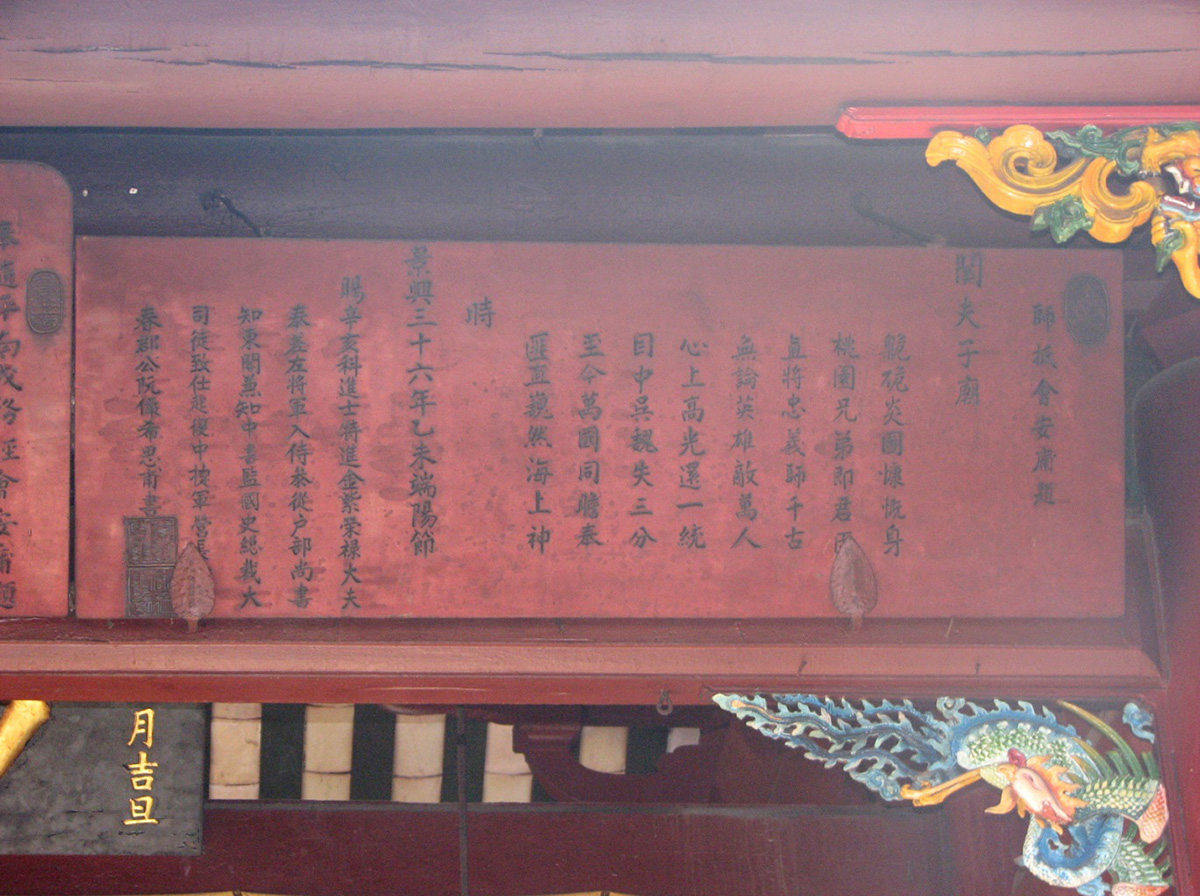 師抵會安庸題
關夫子廟
貌硊炎圖慷慨身
桃園兄弟即君臣
直將忠義師千古
無論英雄敵萬人
心上高光還一統
目中吳魏失三分
至今萬國同瞻奉
匪亙巍然海上神
時
景興三十六年乙未端陽節
賜辛亥科進士特進金紫榮祿大夫
奉差左將軍入侍參從户部尚書
知東閣兼知中書監國史總裁大
司徒致仕起復中捷軍營長
春郡公阮儼希思甫書
會安庸題
月吉旦